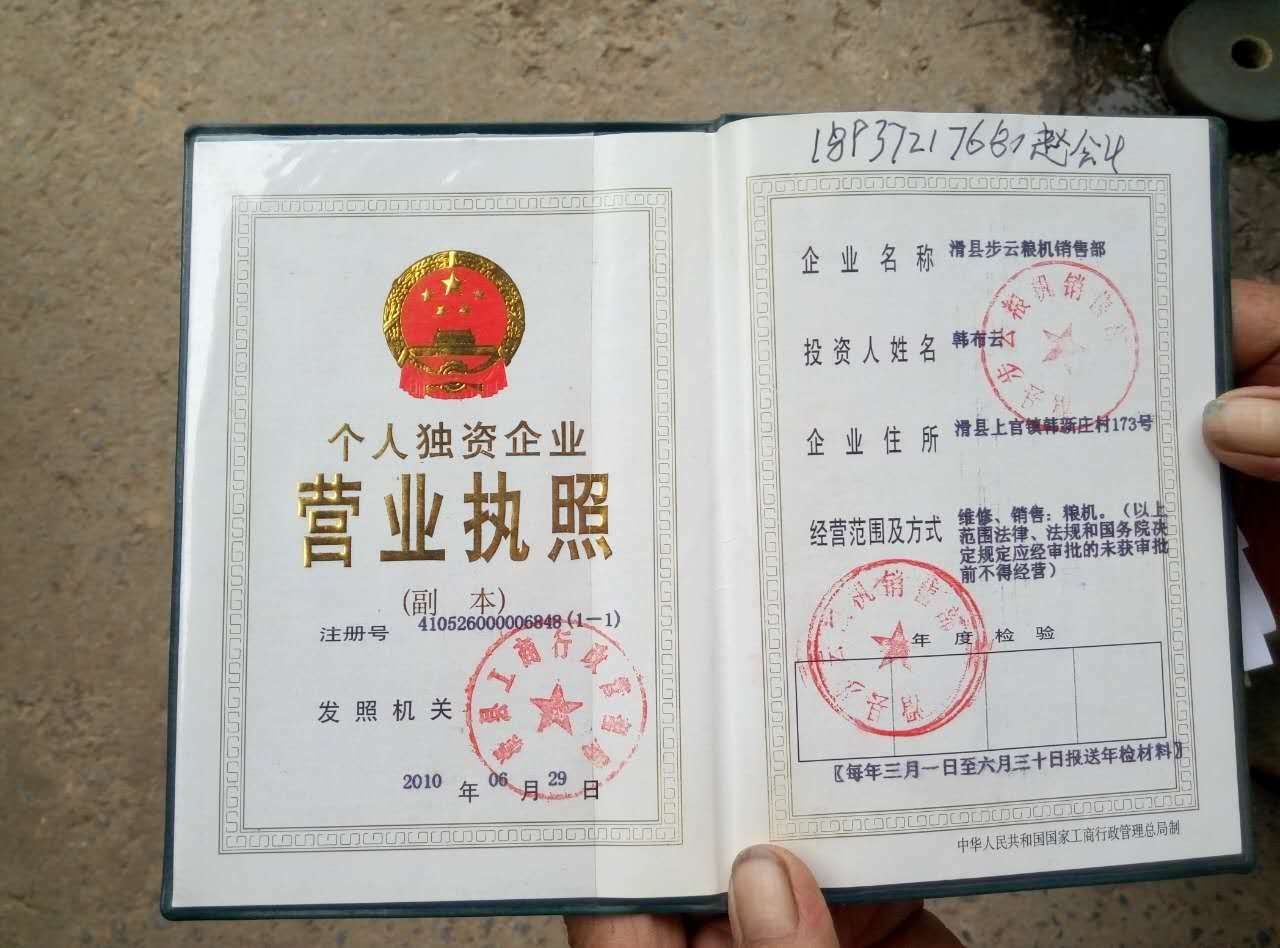 个人独资企业
营业执照
(副 本)
注册号 410526000006848(1-1)
发照机关
滑县工商行政管理局
2010年06月29日
赵会计
企业名称 滑县步云粮机销售部
投资人姓名 韩布云
企业住所 滑县上官镇韩新庄村173号
经营范围及方式 维修、销售：粮机。（以上
范围法律、法规和国务院决
定规定应经审批的未获审批
前不得经营）
滑县步云粮机销售部
滑县步云粮机销售部
年度检验
〖每年三月一日至六月三十日报送年检材料〗
中华人民共和国国家工商行政管理总局制